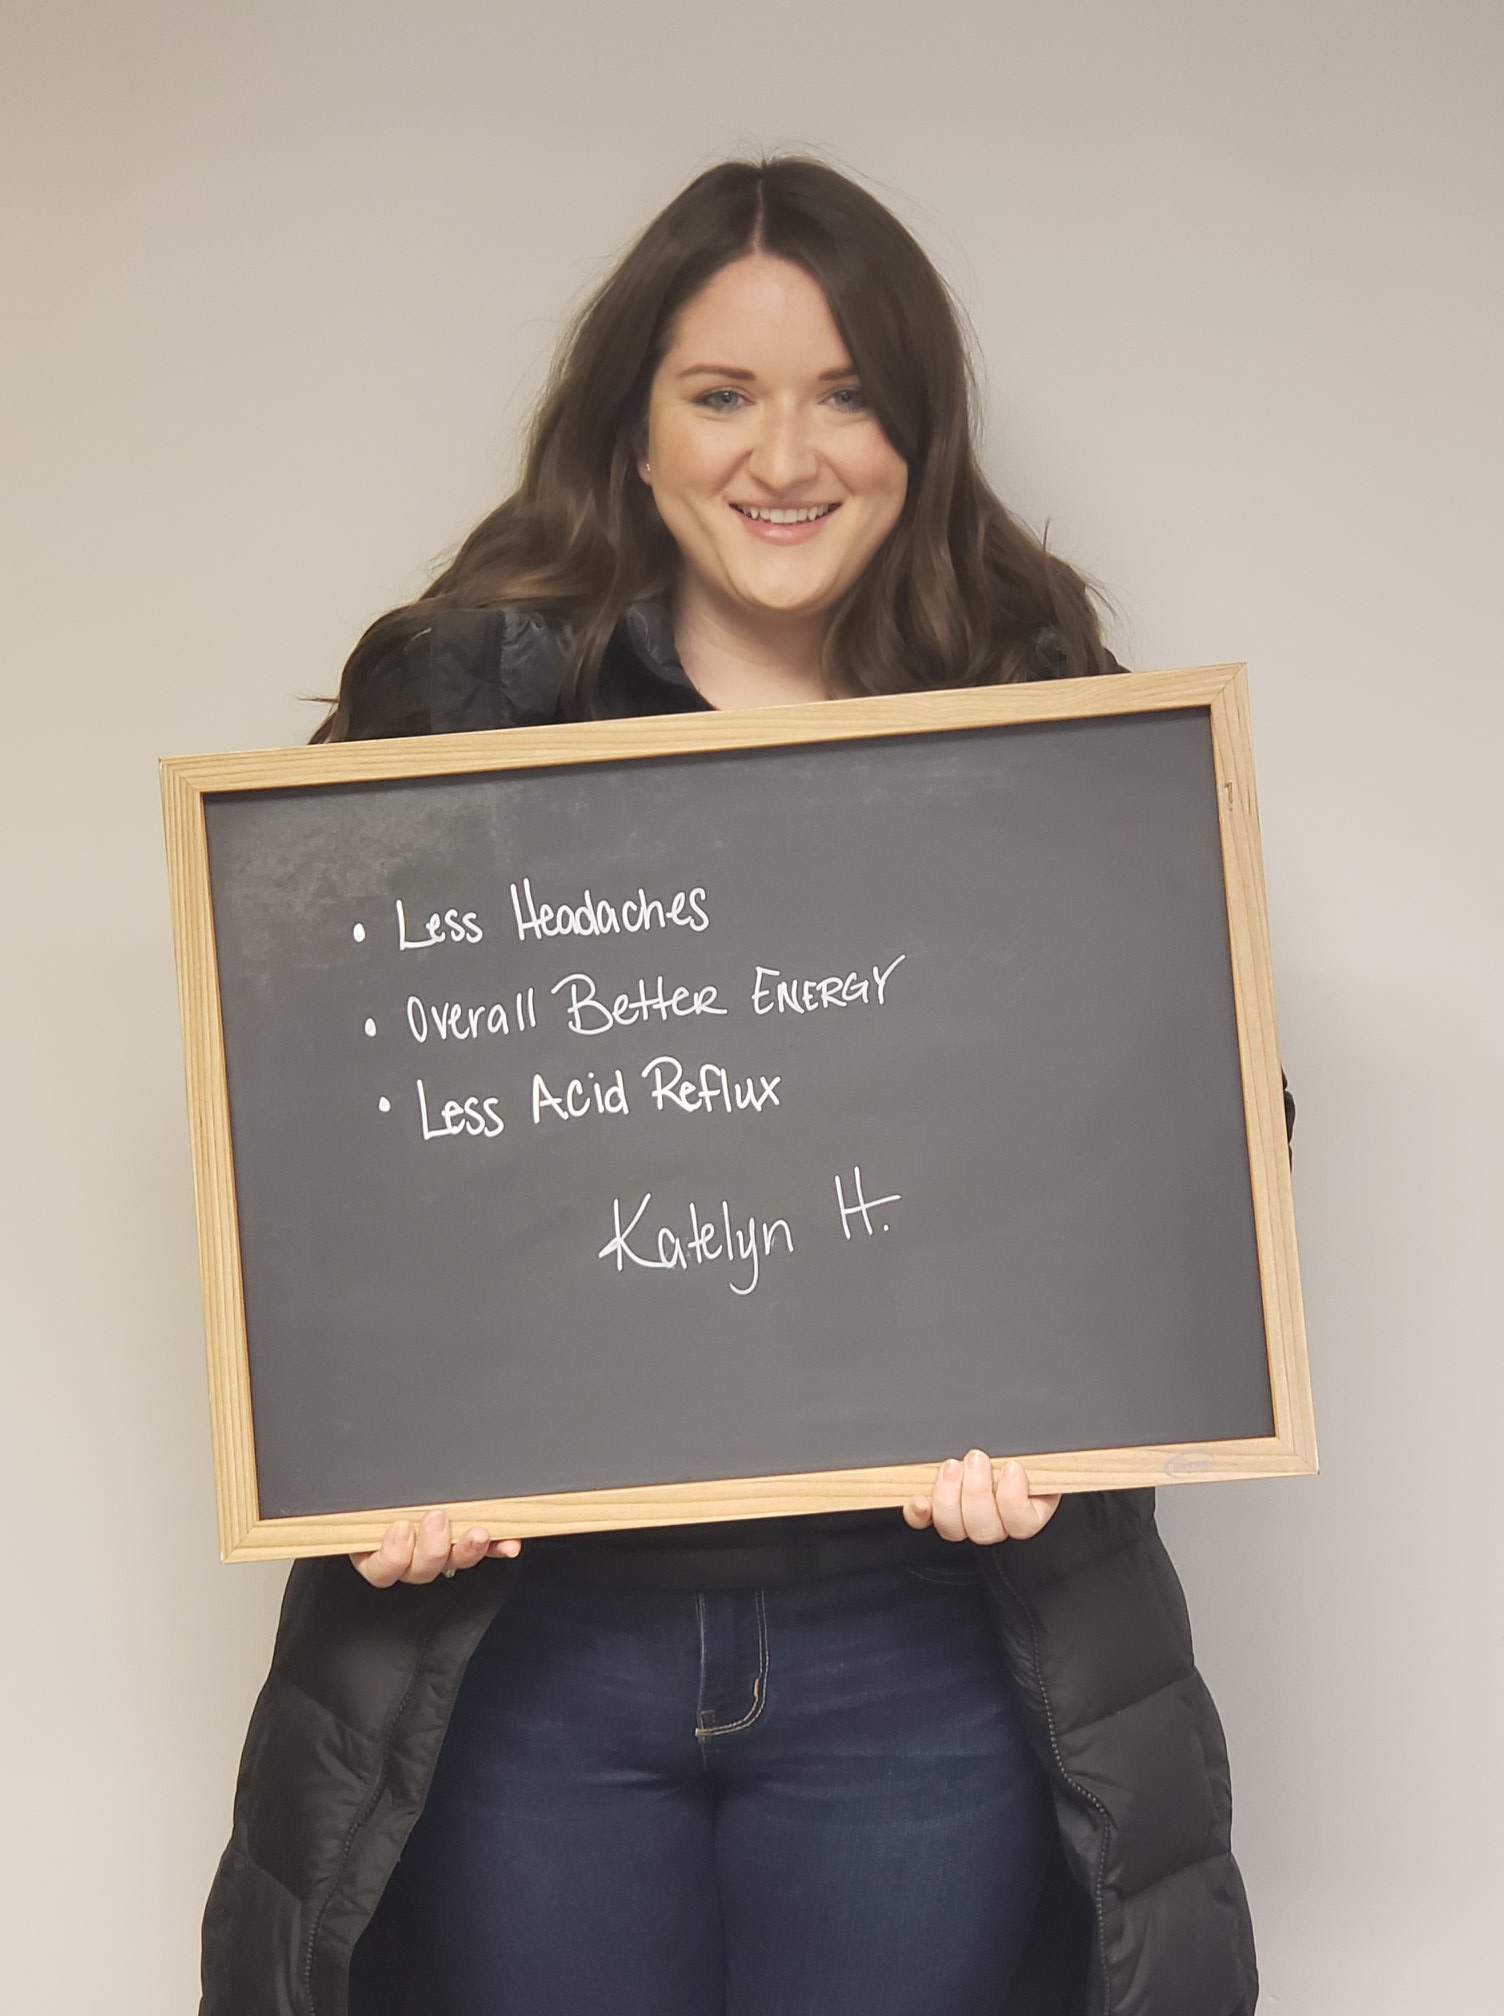 • Less Headaches
• Overall Better ENERGY
• Less Acid Reflux
Katelyn H.